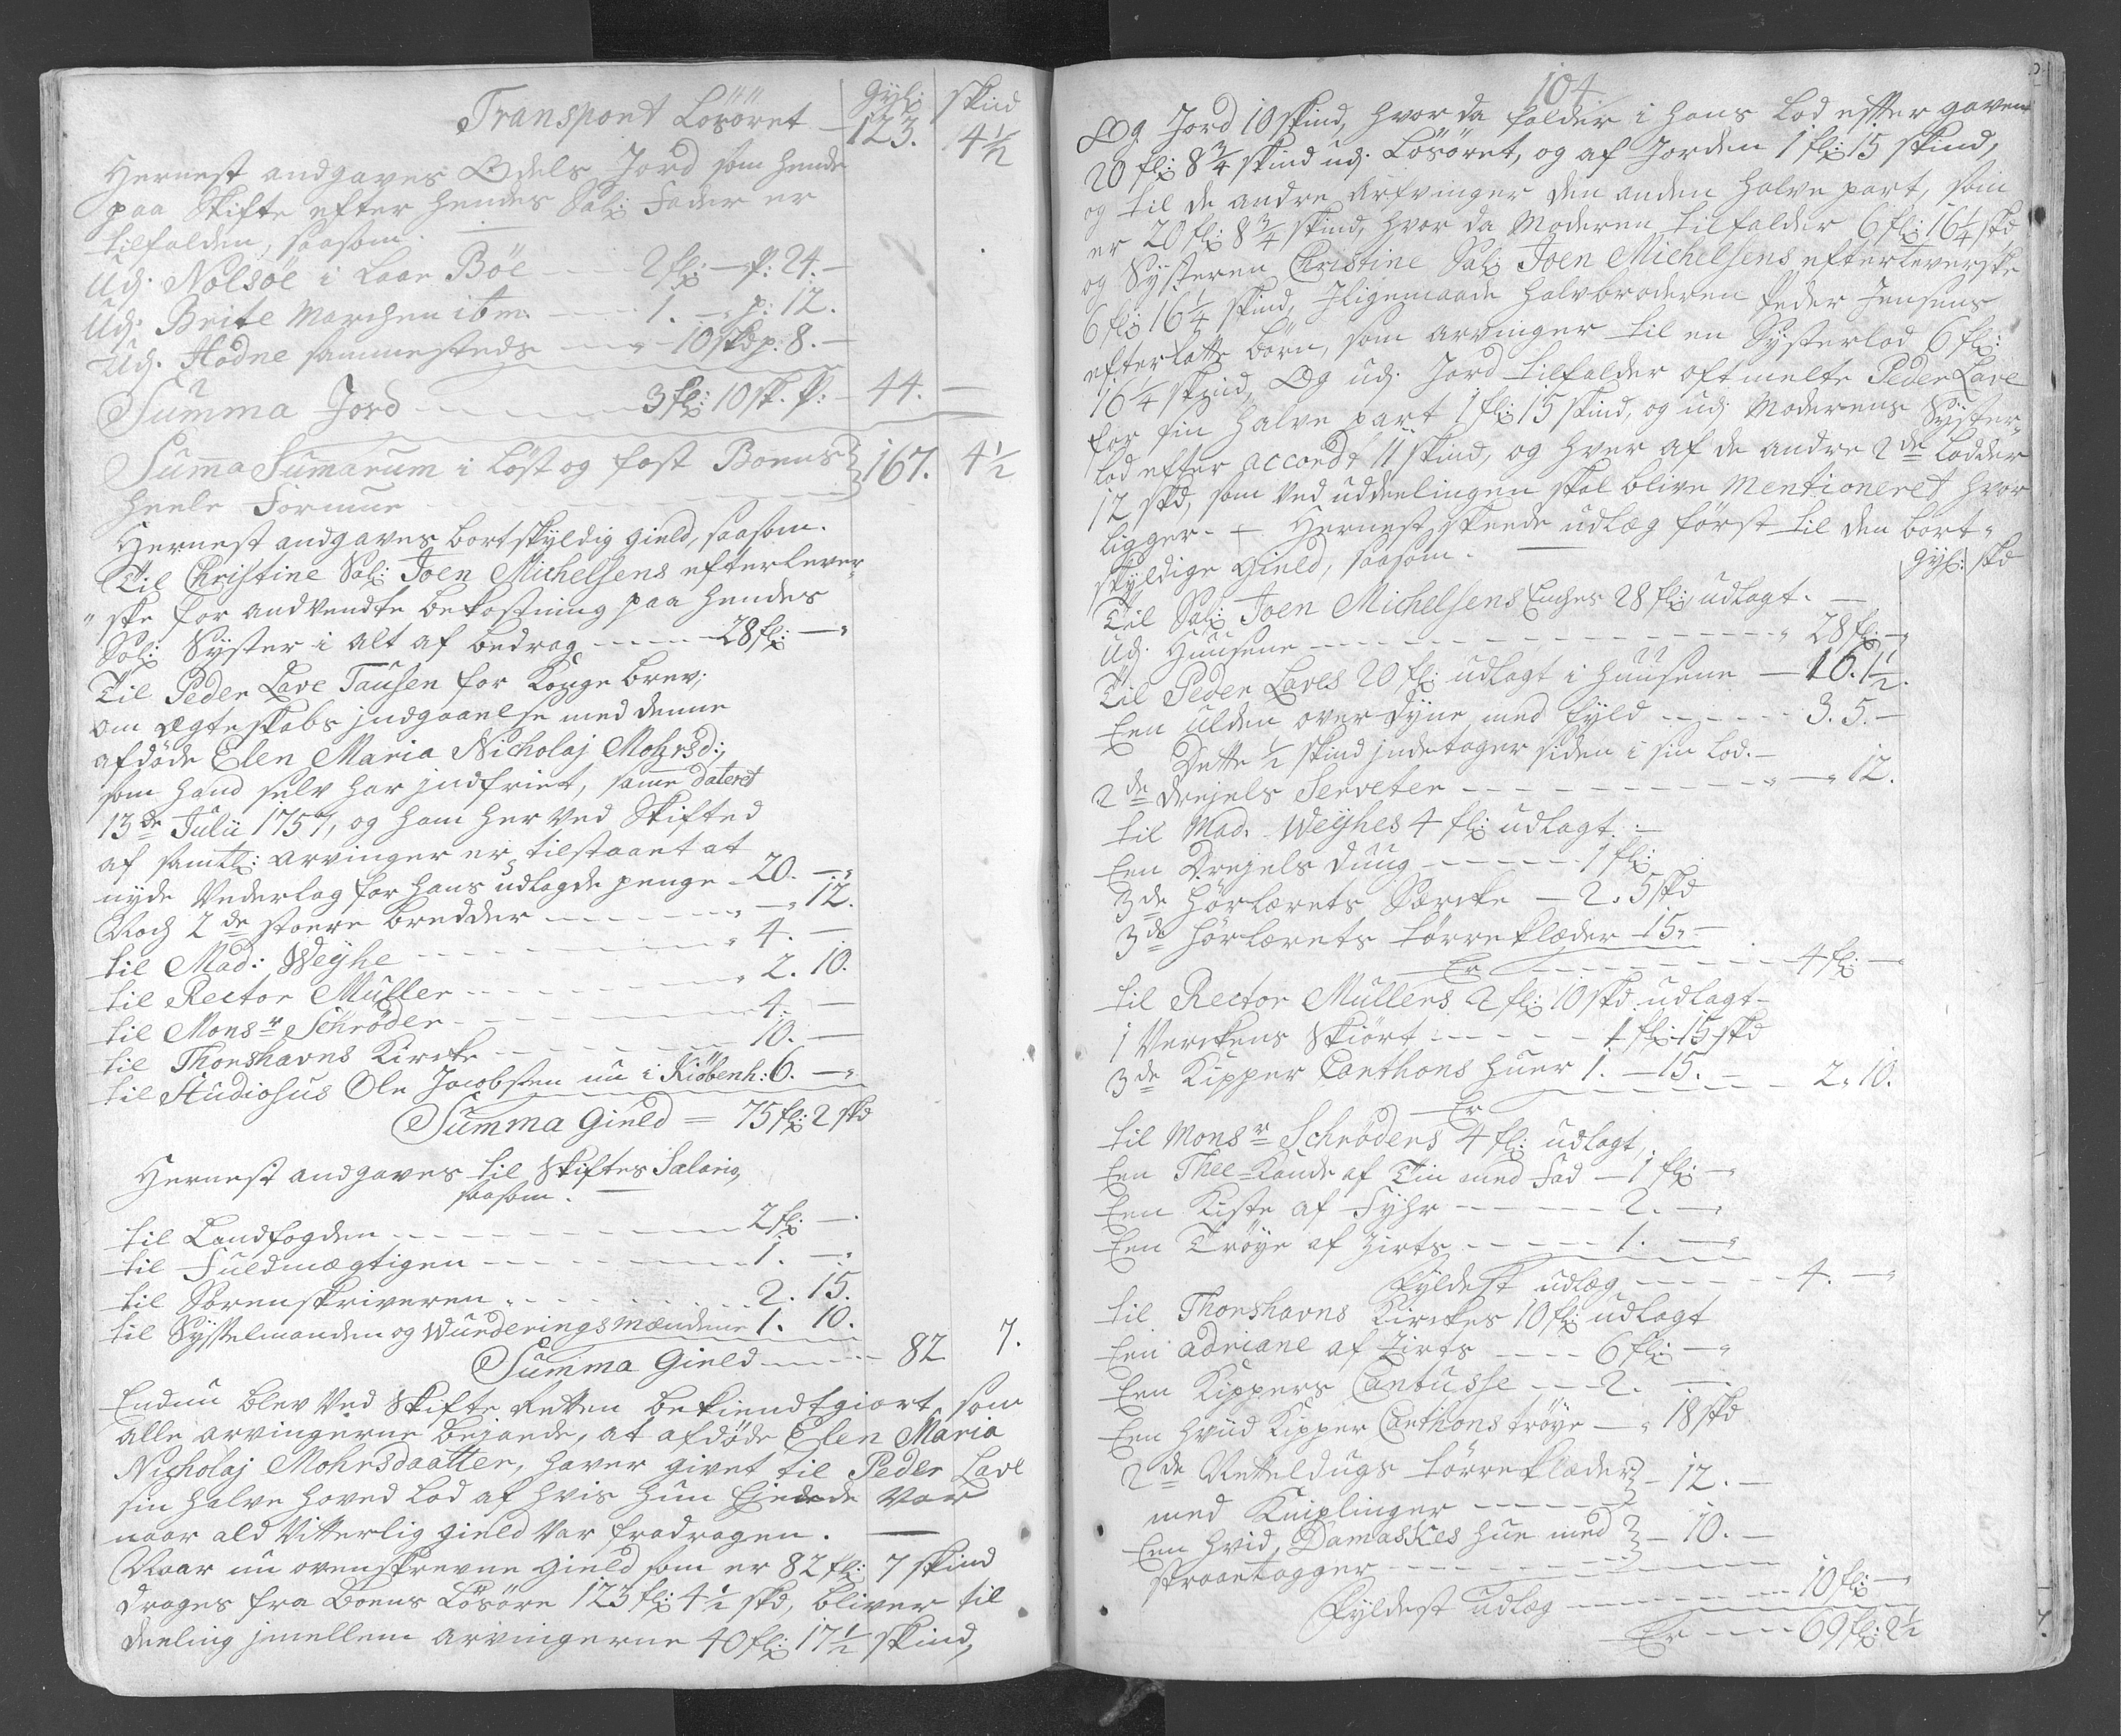 Gyl: skind
Transport Lösöret — 123. 4½
Hernest andgaves Odels Jord som hende
paa Skifte efter hendes Sal: Fader er
tilfalden, saasom. —
Udj Nolsöe i Laar Böe - - - 2 fl: — p: 24. —
Udj Brite Marchen ibm. - - - - 1. — p: 12.
Udj. Hodne sammesteds - - - 10 skd p: 8. —
Summa Jord - - - - - 3 fl: 10 sk. p: — 44. —
Summa Sumarum i löst og fast Boens } 167. 4½
heele Formue
Hernest andgaves bortskyldig gield, saasom.
Til Christine Sal: Joen Michelsens efterlever-
ske for andvendte bekostning paa hendes
Sal: Syster i alt af bedrag - - - - 28 fl: —
Til Peder Lave Tausen for Konge brev;
om Ægteskabs jndgaaelse med denne
afdöde Elen Maria Nicholaj Mohrsd:,
som hand selv har jndfriet, same dateret
13de Julii 1757, og ham her ved Skifted
af samtl: arvinger er tilstaaet at
nyde Vederlag for hans udlagde penge - 20. —
Noch 2de stoere bredder - - - - - — 12.
til Mad: Weyhe - - - - - - - 4. —
til Rector Müller - - - - - - 2. 10.
til Monsr Schröder - - - - - - 4. —
til Thorshavns Kircke - - - - - 10. —
til Studiosus Ole Jacobsen nu i Kiöbenh: 6. —
Summa Gield = 75 fl: 2 skd
Hernest andgaves til Skiftes Salario,
saasom. —
til Landfogden - - - - - - - 2 fl: —
til Fuldmægtigen - - - - - - 1. —
til Sorenskriveren - - - - - - 2. 15.
til Sysselmanden og Wurderingsmændene 1. 10.
Summa Gield - - - - 82 7.
Endnu blev ved Skifte Retten bekiendtgiort som
alle arvingerne bejaede, at afdöde Elen Maria
Nicholaj Mohrsdaatter, haver givet til Peder Lave
sin halve hoved Lod af hvis hun Ejede Var
naar ald Vitterlig gield var fradragen. —
Naar nu ovenskrevne Gield som er 82 fl: 7 skind
drages fra Boens Lösöre 123 fl: 4½ skd, bliver til
deeling jmellem arvingerne 40 fl: 17½ skind,
104
Og Jord 10 skind, hvor da falder i hans Lod efter gaven
20 fl: 8¾ skind udj Lösöret, og af Jorden 1 fl: 15 skind,
og til de andre Arfvinger den anden halve part, som
er 20 fl: 8¾ skind, hvor da Moderen tilfalder 6 fl: 16¼ skd
og Systeren Christine Sal: Joen Michelsens efterleverske
6 fl: 16¼ skind, Jligemaade halvbroderen Peder Jensens
efterlatte börn, som arvinger til en Systerlod 6 fl:
16¼ skind, Og udj Jord tilfalder oftmelte Peder Lave
for sin halve part 1 fl: 15 skind, og udj Moderens Syster-
lod efter accordt 11 skind, og hver af de andre 2de Lodder
12 skd, som ved uddeelingen skal blive Mentioneret hvor
ligger. — Hernest skeede udlæg först til den bort-
skyldige Gield, saasom. —
Gyl: skd
Til Sal: Joen Michelsens Enches 28 fl: udlagt. —
Udj Huusene - - - - - - - - - - 28 fl: —
Til Peder Laves 20 fl: udlagt i huusene — 16. 1½.
Een ulden over dyne med fyld - - - - - 3. 5. —
Dette ½ skind jndtager siden i sin Lod. —
2de Drejels Serveter - - - - - - - - — 12.
til Mad: Weyhes 4 fl: udlagt. —
Een Drejels Duug - - - - - - 1 fl:
3de hörlærets Særcke — 2. 5 skd
3de hörlærets törreklæder — 15. —
Er - - - - - - - - 4 fl: —
til Rector Müllers 2 fl: 10 skd udlagt —
1 Verckens Skiört - - - - - 1 fl: 15 skd
3de Kipper Canthons huer 1. — 15. —
Er - - - - - 2. 10.
til Monsr Schröders 4 fl: udlagt,
Een Thee-Kande af Tin med Fad — 1 fl: —
Een Kiste af Fyhr - - - - - 2. —
Een Tröye af Zirts - - - - - 1. —
Fyldest udlæg - - - - - 4. —
til Thorshavns Kirckes 10 fl: udlagt
Een adriane af Zirts - - - - 6 fl: —
Een Kippers Cantusse - - - 2. —
Een hvid Kipper Canthons tröye — 18 skd
2de Netteldugs törreklæder } — 12. —
med Kniplinger - - - - -
Een hvid Damaskes hue med } — 10. —
- - - - -
Fyldest udlæg - - - - - - 10 fl: —
Er - - - - 69 fl: 2½